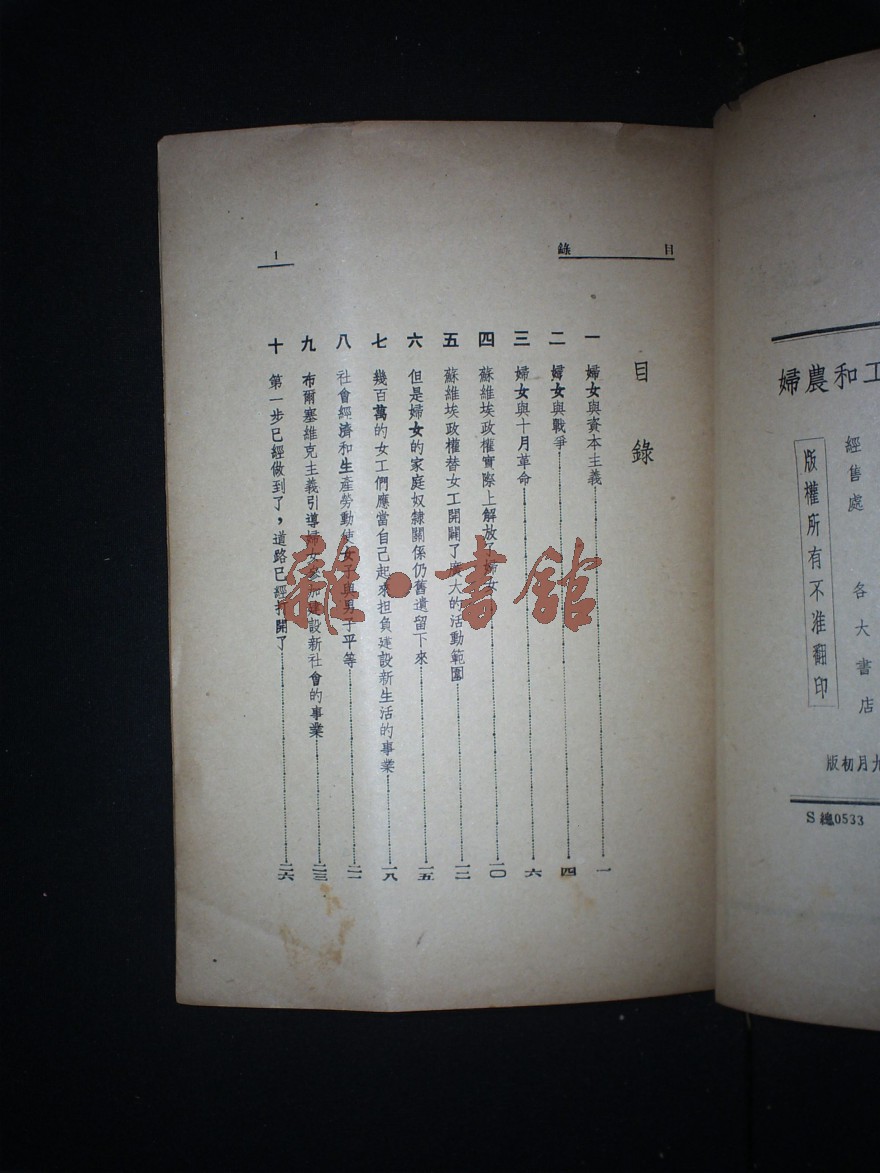 工和農婦
經售處 各大書店
版權所有不准翻印
九月初版
S總0533
目錄
1
目錄
一 婦女與資本主義 一
二 婦女與戰爭 四
三 婦女與十月革命 六
四 蘇維埃政權實際上解放了婦女 一〇
五 蘇維埃政權替女工開闢了廣大的活動範圍 一二
六 但是婦女的家庭奴隸關係仍舊遺留下來 一五
七 幾百萬的女工們應當自己起來担負建設新生活的事業 一八
八 社會經濟和生產勞動使女子與男子平等 二一
九 布爾塞維克主義引導婦女參加建設新社會的事業 二三
十 第一步已經做到了，道路已經打開了 二六
雜·書館